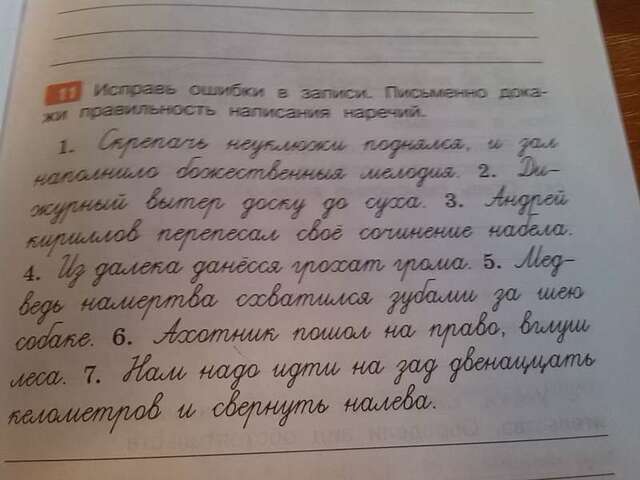 11 Исправь ошибки в записи. Письменно дока-
жи правильность написания наречий.
1. Скрепачь неуклюжи поднялся, и зал
наполнило божественныя мелодия. 2. Ди-
журный вытер доску до суха. 3. Андрей
кириллов перепесал своё сочинение набела.
4. Из далека данёсся грохат грома. 5. Мед-
ведь намертва схватился зубами за шею
собаке. 6. Ахотник пошол на право, вглуш
леса. 7. Нам надо идти на зад двенаццать
келометров и свернуть налева.